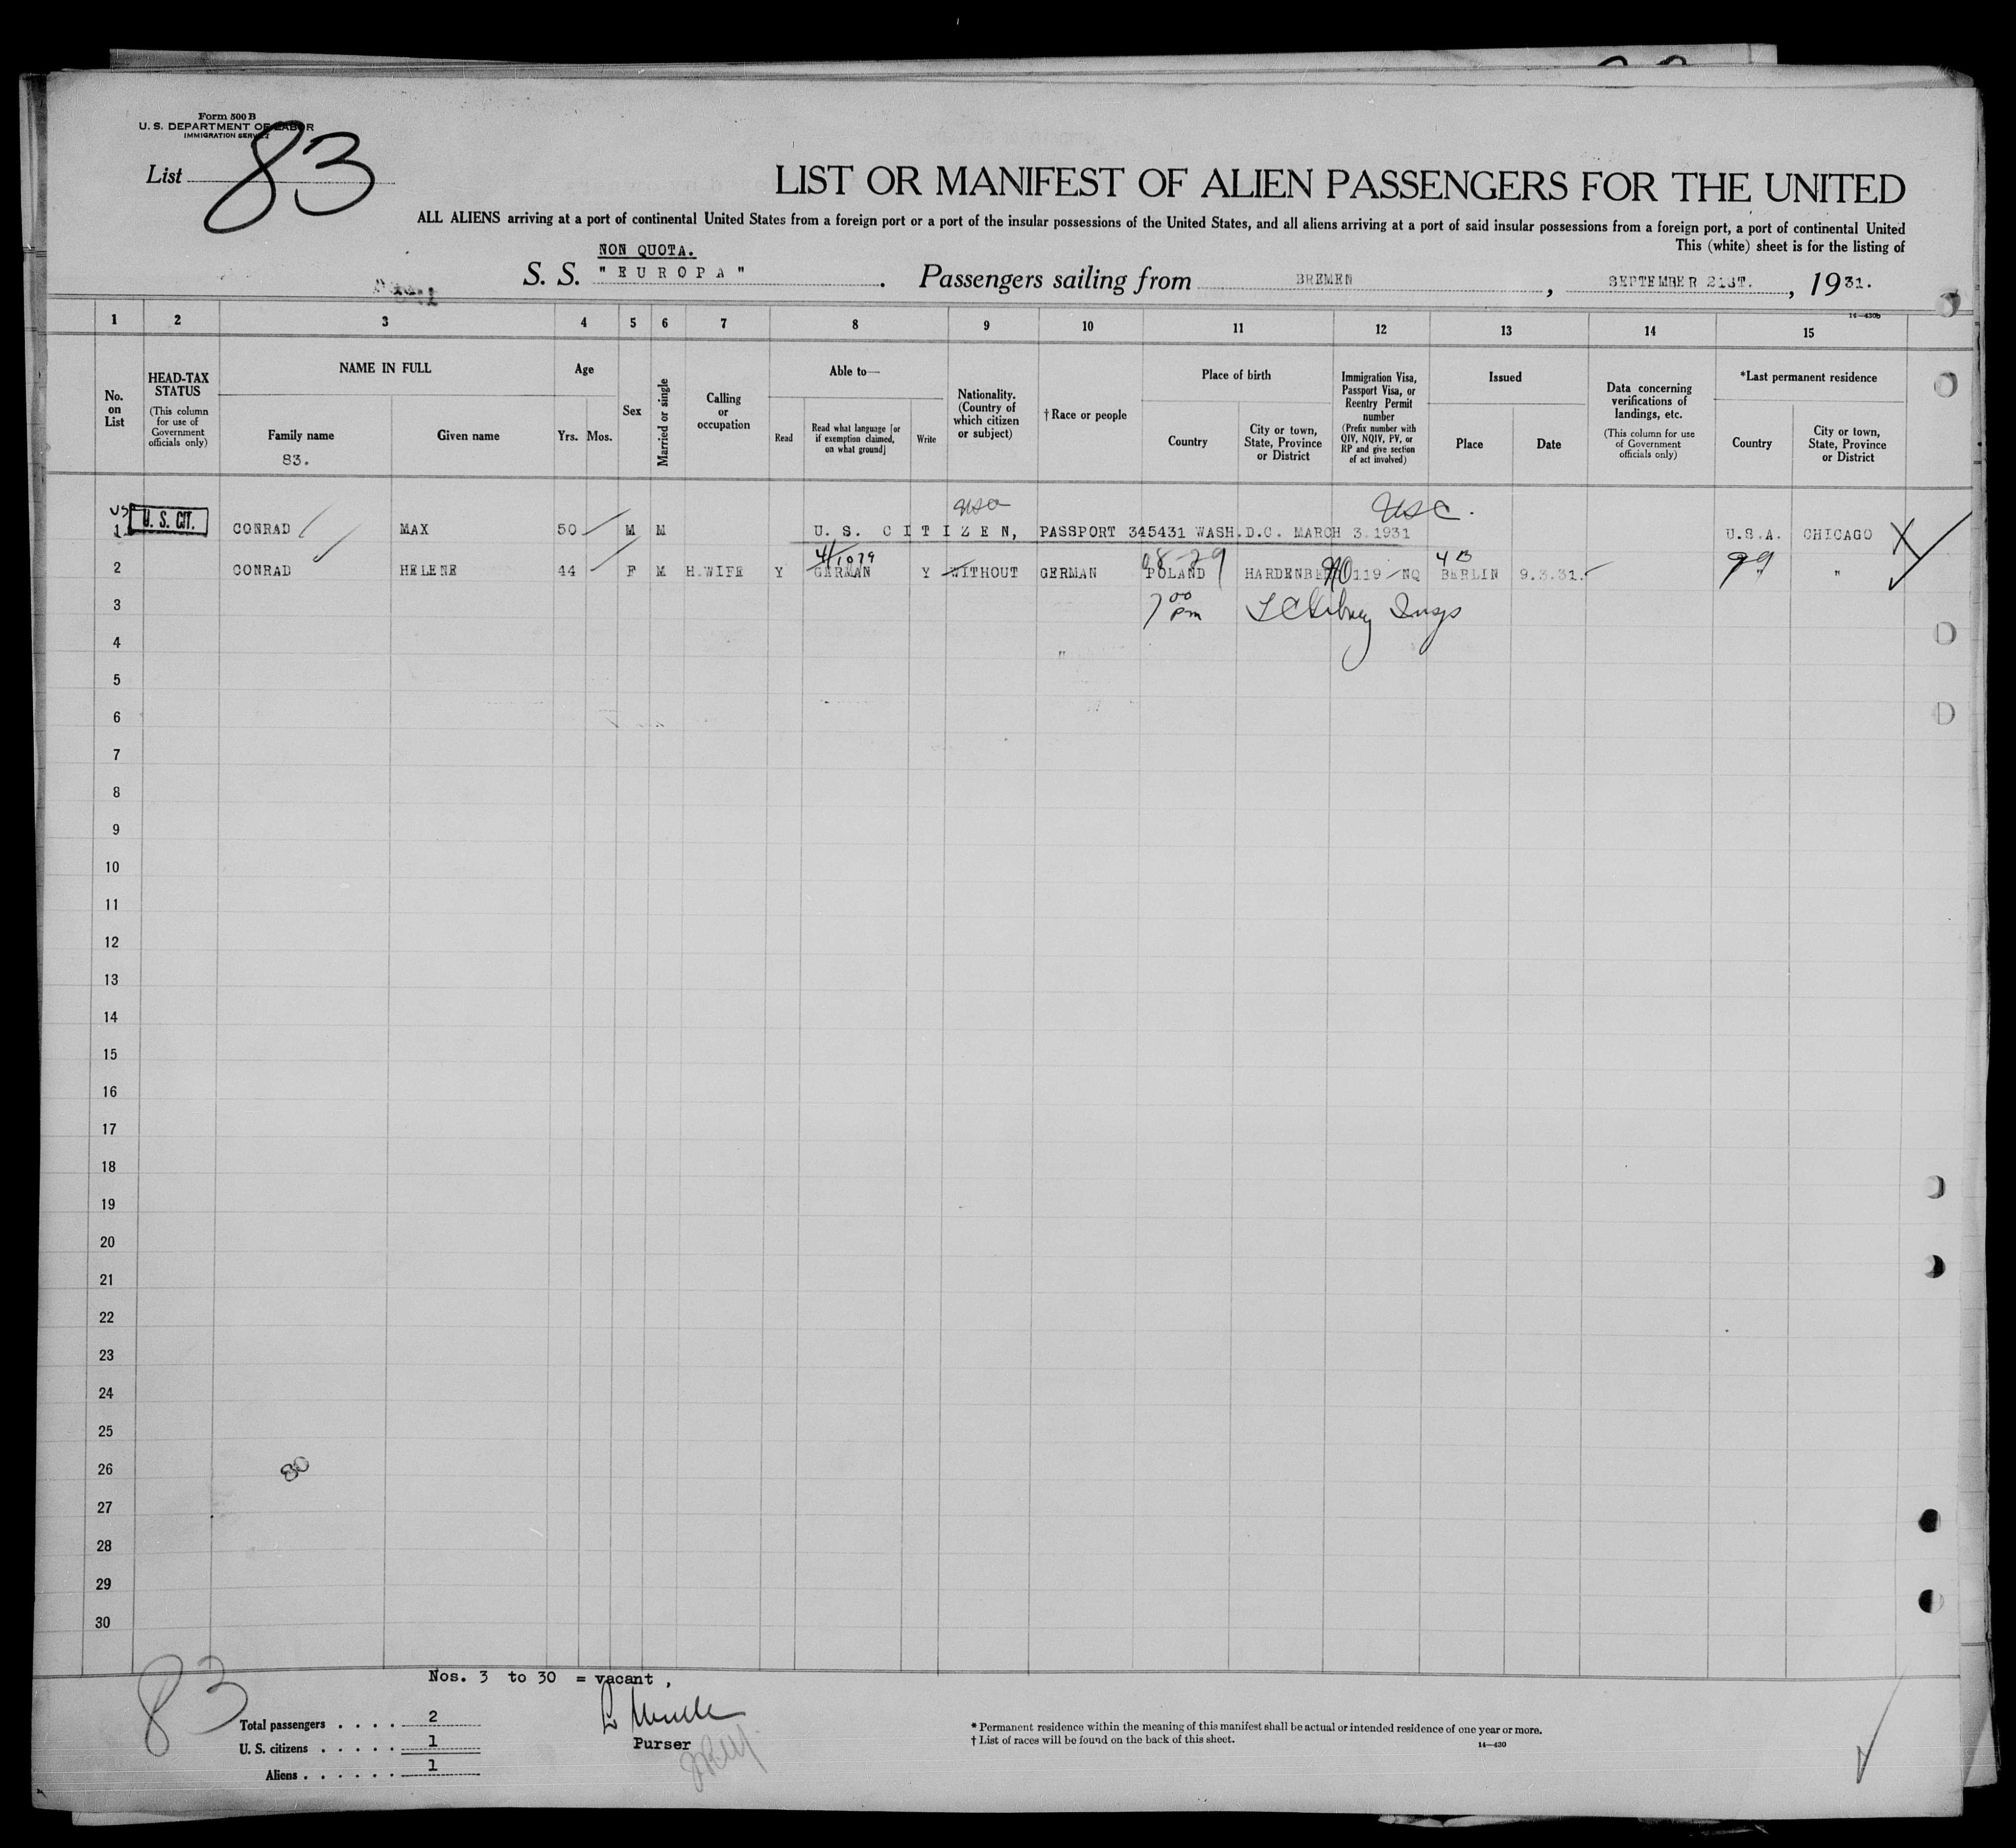 Form 500 B
U. S. DEPARTMENT OF LABOR
IMMIGRATION SERVICE
List 83
LIST OR MANIFEST OF ALIEN PASSENGERS FOR THE UNITED
ALL ALIENS arriving at a port of continental United States from a foreign port or a port of the insular possessions of the United States, and all aliens arriving at a port of said insular possessions from a foreign port, a port of continental United
This (white) sheet is for the listing of
NON QUOTA.
S. S. "EUROPA". Passengers sailing from BREMEN, SEPTEMBER 21ST., 1931.
14-430b
1 2 3 4 5 6 7 8 9 10 11 12 13 14 15
No. on List
HEAD-TAX STATUS
(This column for use of Government officials only)
NAME IN FULL
Family name
83.
Given name
Age
Yrs. Mos.
Sex
Married or single
Calling or occupation
Able to—
Read
Read what language [or if exemption claimed, on what ground]
Write
Nationality. (Country of which citizen or subject)
† Race or people
Place of birth
Country
City or town, State, Province or District
Immigration Visa, Passport Visa, or Reentry Permit number
(Prefix number with QIV, NQIV, PV, or RP and give section of act involved)
Issued
Place
Date
Data concerning verifications of landings, etc.
(This column for use of Government officials only)
*Last permanent residence
Country
City or town, State, Province or District
usa usc.
US
1 U. S. CIT. CONRAD MAX 50 M M U. S. CITIZEN, PASSPORT 345431 WASH.D.C. MARCH 3.1931 U.S.A. CHICAGO
4/1079 4 B 99
2 CONRAD HELENE 44 F M H.WIFE Y GERMAN Y WITHOUT GERMAN POLAND HARDENBE 119 NQ BERLIN 9.3.31. " "
3 7 00 pm Insp
4 "
5
6
7
8
9
10
11
12
13
14
15
16
17
18
19
20
21
22
23
24
25
26 80
27
28
29
30
Nos. 3 to 30 = vacant,
83
Total passengers . . . . 2
U. S. citizens . . . . . 1
Aliens . . . . . . 1
Purser
* Permanent residence within the meaning of this manifest shall be actual or intended residence of one year or more.
† List of races will be found on the back of this sheet.
14—430